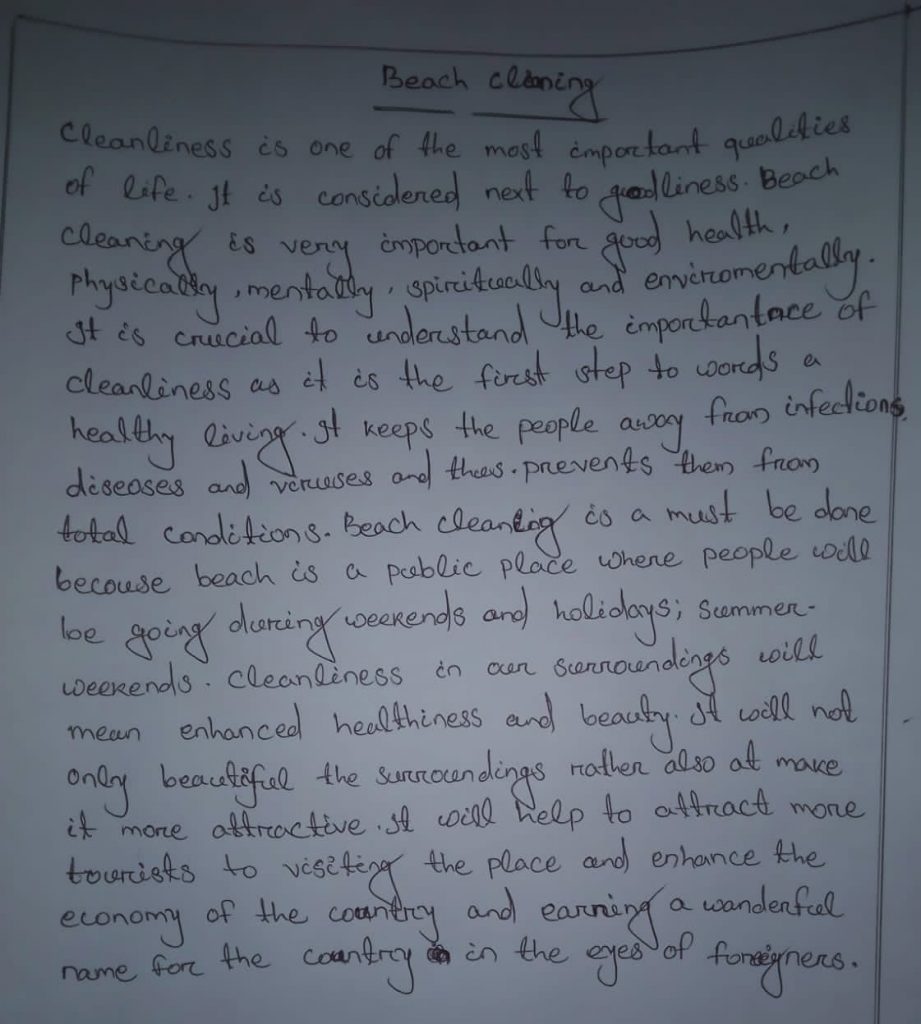 Beach cleaning
Cleanliness is one of the most important qualities
of life. It is considered next to goodliness. Beach
cleaning is very important for good health,
physically, mentally, spiritually and enviromentally.
It is crucial to understand the importantnce of
cleanliness as it is the first step to words a
healthy living. It keeps the people away from infections,
diseases and viruses and thus. prevents them from
total conditions. Beach cleaning is a must be done
becouse beach is a public place where people will
be going during weekends and holidays; summer-
weekends. Cleanliness in our surroundings will
mean enhanced healthiness and beauty. It will not
only beautiful the surroundings rather also at make
it more attractive. It will help to attract more
tourists to visiting the place and enhance the
economy of the country and earning a wanderful
name for the country in the eyes of foreigners.